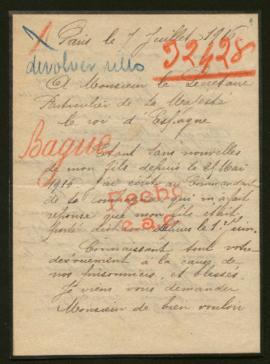 Paris le 7 Juillet 1916
52428
devolver
A Monsieur le Secrétaire
Particulier de Sa Majesté
le roi d'Espagne
Bague
Etant sans nouvelles
de mon fils depuis le 27 Mai
1916 J'ai écrit au Commandant
de sa Compagnie qui m'a fait
réponse que mon fils était
porté disparu depuis le 1er Juin.
Connaissant tout votre
dévouement à la cause de
nos prisonniers et blessés
Je viens vous demander
Monsieur de bien vouloir